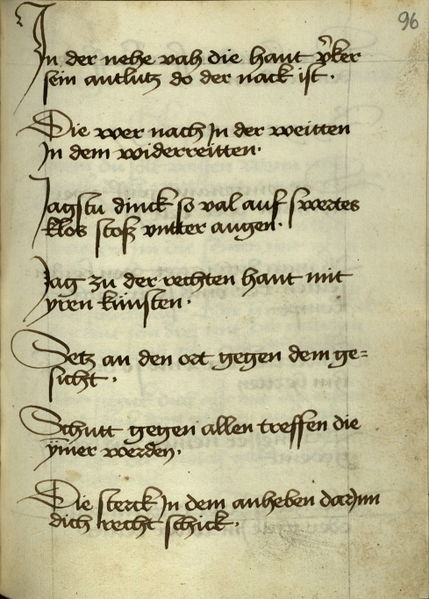 96
In der nehe vah die hant v̾ker
sein antlutz do der nack ist.
Die wer nach In der weitten
In dem widerreitten.
Jagstu dinck so val auf swertes
klos stosz vntter augen.
Jag zu der rechten hant mit
yren künsten.
Setz an den ort gegen dem ge=
sicht.
Schutt gegen allen treffen die
ÿmer werden.
Die sterck In dem anheben dar Inn
dich recht schick.